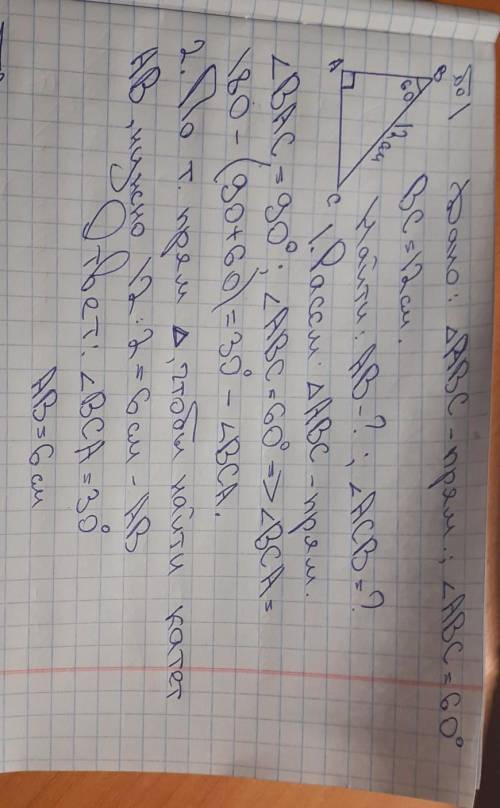 Дано: △ABC - прям.; ∠ABC = 60°
BC = 12 см.
Найти: AB - ?; ∠ACB = ?
B
60
12 см
A
C
1. Рассм. △ABC - прям.
∠BAC = 90°; ∠ABC = 60° => ∠BCA =
180 - (90+60) = 30° - ∠BCA.
2. По т. прям △, чтобы найти катет
AB, нужно 12:2 = 6 см - AB
Ответ: ∠BCA = 30°
AB = 6 см